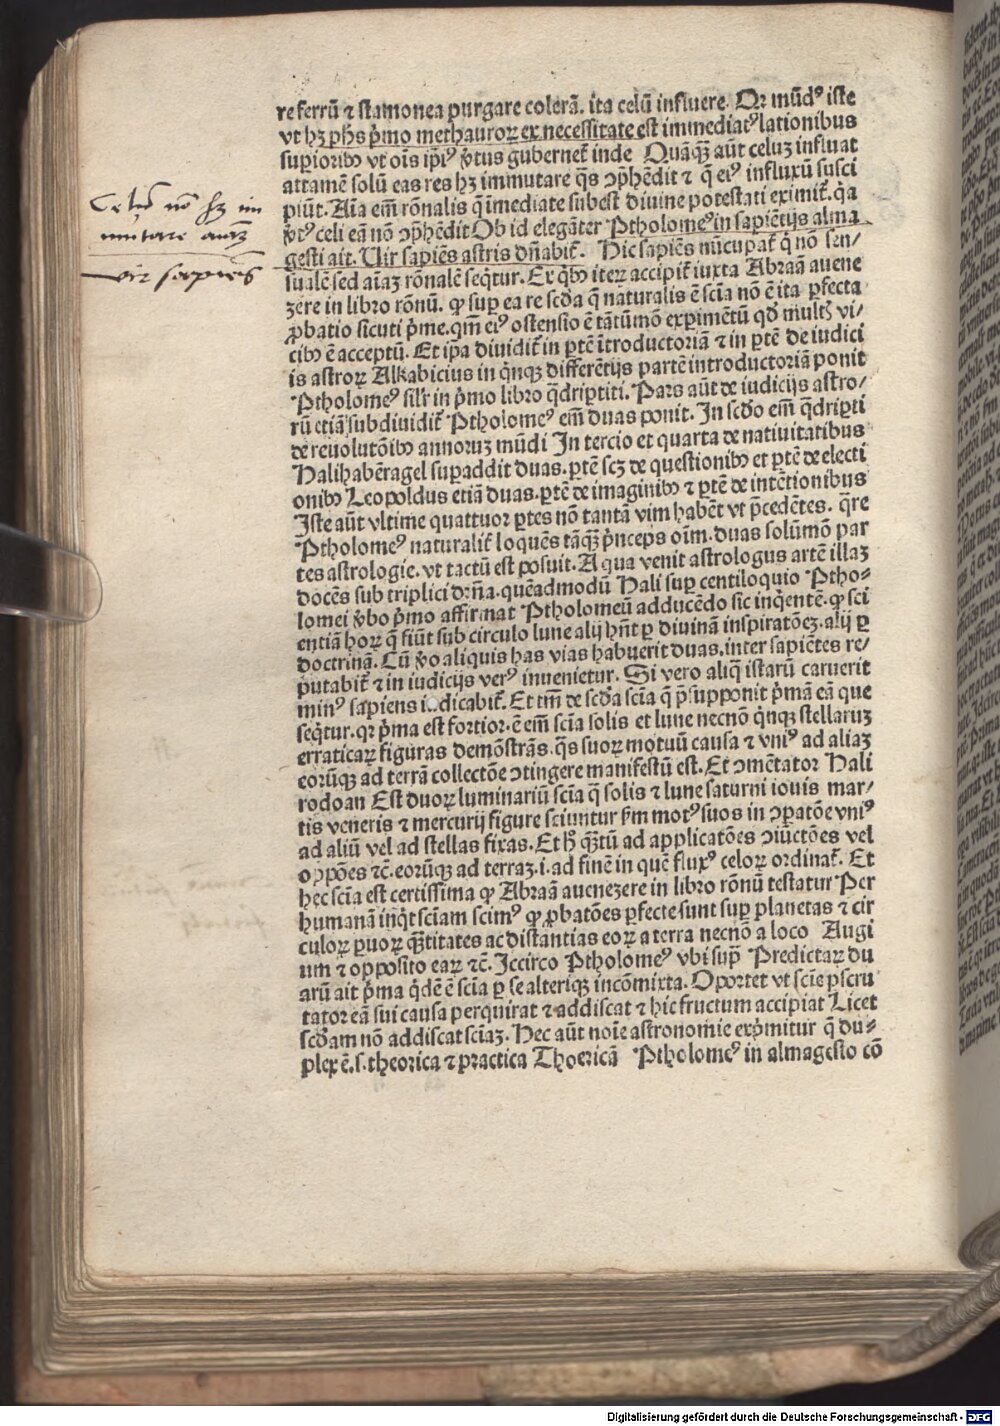 Celū nō hꝫ im
mutare aīaꝫ
vir sapiēs
re ferrū ⁊ stamonea purgare colerā. ita celū influere. Qꝛ mūdꝰ iste
vt hꝫ phs p̄mo methauroꝝ ex necessitate est immediatꝰ lationibus
supioribꝰ vt oīs ip̄iꝰ v̓tus gubernet̄ inde Quāqꝫ aūt celuꝫ influat
attamē solū eas res hꝫ immutare q̄s ꝯp̄hēdit ⁊ q̄ eiꝰ influxū susci
piūt. Aīa em̄ rōnalis q̄ imediate subest diuine potestati eximit̄. q̇a
v̓tꝰ celi eā nō ꝯp̄hēdit Ob id elegāter Ptholomeꝰ in sapiētijs alma
gesti ait. Uir sapiēs astris dn̄abit̄. Hic sapiēs nūcupat̄ q̇ nō sen⸗
sualē sed aīaꝫ rōnalē seqt̄ur. Ex q̇bꝰ iteꝝ accipit̄ iuxta Abraā auene
zere in libro rōnū. ꝙ sup ea re scd̄a q̄ naturalis ē scīa nō ē ita ꝑfecta
ꝓbatio sicuti p̄me. qm̄ eiꝰ ostensio ē tātūmō expimētū qd̓ multꝭ vi⸗
cibꝰ ē acceptū. Et ip̄a diuidit̄ in ꝑtē ītroductoriā ⁊ in ꝑtē de iudici
is astroꝝ Alkabicius in q̇nqꝫ differētijs partē introductoriā ponit
Ptholomeꝰ sil̓r in p̄mo libro q̄driptiti. Pars aūt de iudicijs astro/
rū etiā subdiuidit̄ Ptholomeꝰ em̄ duas ponit. In scd̄o em̄ q̄dripti
de reuolutōibꝰ annoruꝫ mūdi In tercio et quarta de natiuitatibus
Halihabēragel supaddit duas. ꝑtē scꝫ de questionibꝰ et ꝑtē de electi
onibꝰ Leopoldus etiā duas. ꝑtē de imaginibꝰ ⁊ ꝑtē de intētionibus
Iste aūt vltime quattuor ꝑtes nō tantā vim habēt vt p̄cedētes. q̄re
Ptholomeꝰ naturalit̄ loquēs tāqꝫ p̄nceps oīm. duas solūmō par
tes astrologie. vt tactū est posuit. A qua venit astrologus artē illaꝫ
docēs sub triplici dr̄n̄a. quēadmodū Hali sup centiloquio Ptho⸗
lomei v̓bo p̄mo affirmat Ptholomeū adducēdo sic inq̇entē. ꝙ sci
entiā hoꝝ q̄ fiūt sub circulo lune alij hn̄t ꝑ diuinā inspiratōeꝫ. alij ꝑ
doctrinā. Cū v̓o aliquis has vias habuerit duas. inter sapiētes re/
putabit̄ ⁊ in iudicijs verꝰ inuenietur. Si vero aliq̄ istarū caruerit
minꝰ sapiens iudicabit̄. Et tm̄ de scd̄a scīa q̄ p̄supponit p̄mā eā que
seqt̄ur. qꝛ p̄ma est fortior. ē em̄ scīa solis et lune necnō q̇nqꝫ stellaruꝫ
erraticaꝝ figuras demōstrās. q̄s suoꝝ motuū causa ⁊ vniꝰ ad aliaꝫ
eorūqꝫ ad terrā collectōe ꝯtingere manifestū est. Et ꝯmētator Hali
rodoan Est duoꝝ luminariū scīa q̄ solis ⁊ lune saturni iouis mar/
tis veneris ⁊ mercurij figure sciuntur ẜm motꝰ suos in ꝯparatōe vniꝰ
ad aliū vel ad stellas fixas. Et hꝰ qꝫtū ad applicatōes ꝯiūctōes vel
oppōes ⁊c̄. eorūqꝫ ad terraꝫ .i. ad finē in quē fluxꝰ celoꝝ ordinat̄. Et
hec scīa est certissima ꝙ Abraā auenezere in libro rōnū testatur Per
humanā inq̇t scīam scimꝰ ꝙ ꝓbatōes ꝑfecte sunt sup planetas ⁊ cir
culoꝝ puoꝝ qꝫtitates ac distantias eoꝝ a terra necnō a loco Augi
um ⁊ opposito eaꝝ ⁊c̄. Iccirco Ptholomeꝰ vbi sup̄ Predictaꝝ du
arū ait p̄ma q̇dē ē scīa ꝑ se alteriqꝫ incōmixta. Oportet vt scīe pscru
tator eā sui causa perquirat ⁊ addiscat ⁊ hic fructum accipiat Licet
scd̄am nō addiscat scīaꝫ. Hec aūt noīe astronomie exp̄mitur q̄ du⸗
plex ē. s. theorica ⁊ practica Thoericā Ptholomeꝰ in almagesto cō
Digitalisierung gefördert durch die Deutsche Forschungsgemeinschaft - DFG